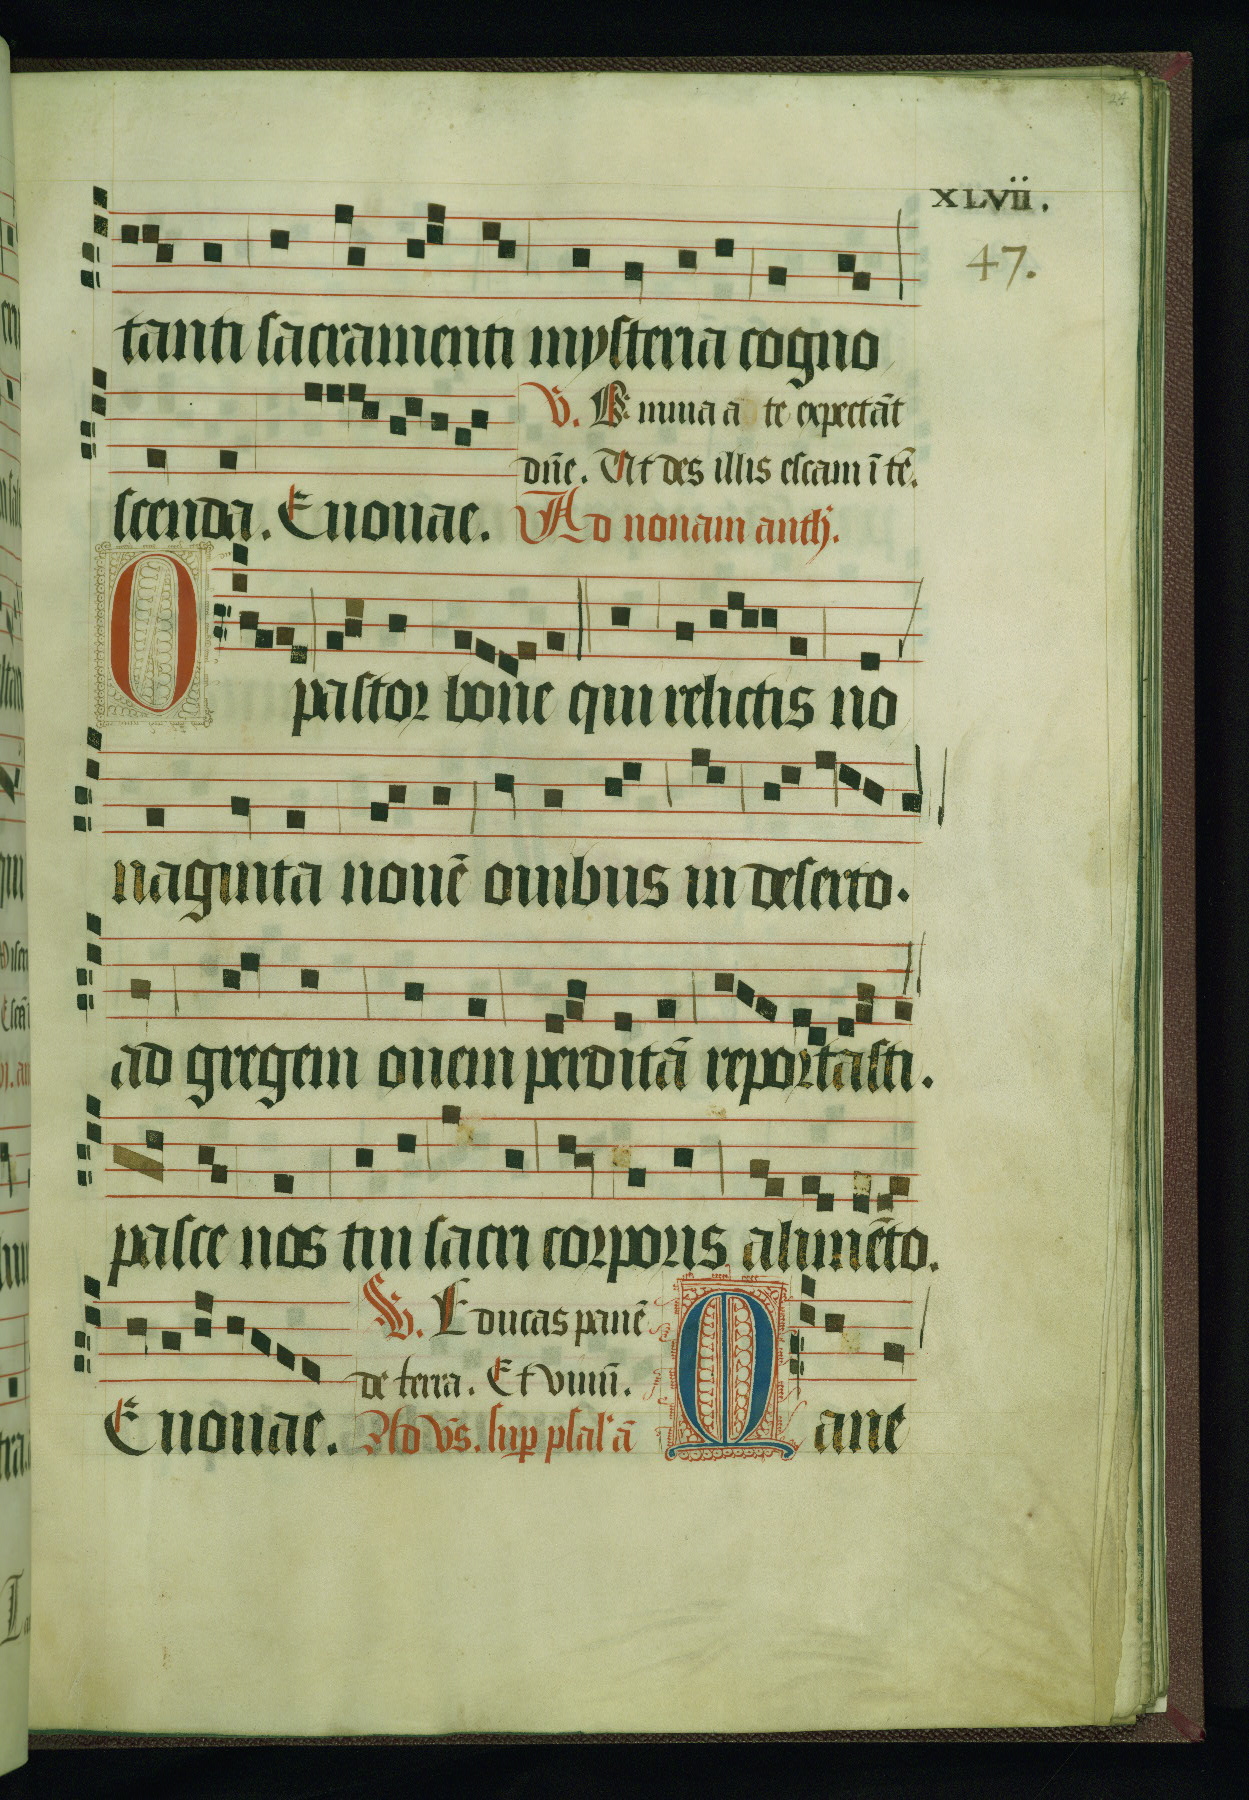 XLVII.
47.
tanti sacramenti mysteria cogno
scenda. Euouae.
V. Omnia a te expectāt
dn̄e. Ut des illis escam ī tē.
Ad nonam anth.
O pastor bone qui relictis no
naginta nouē ouibus in deserto.
ad gregem ouem perditā reportasti.
pasce nos tui sacri corporis alimēto.
Euouae.
V. Educas panē
de terra. Et vinū.
Ad vs̄. sup psal'a
Mane